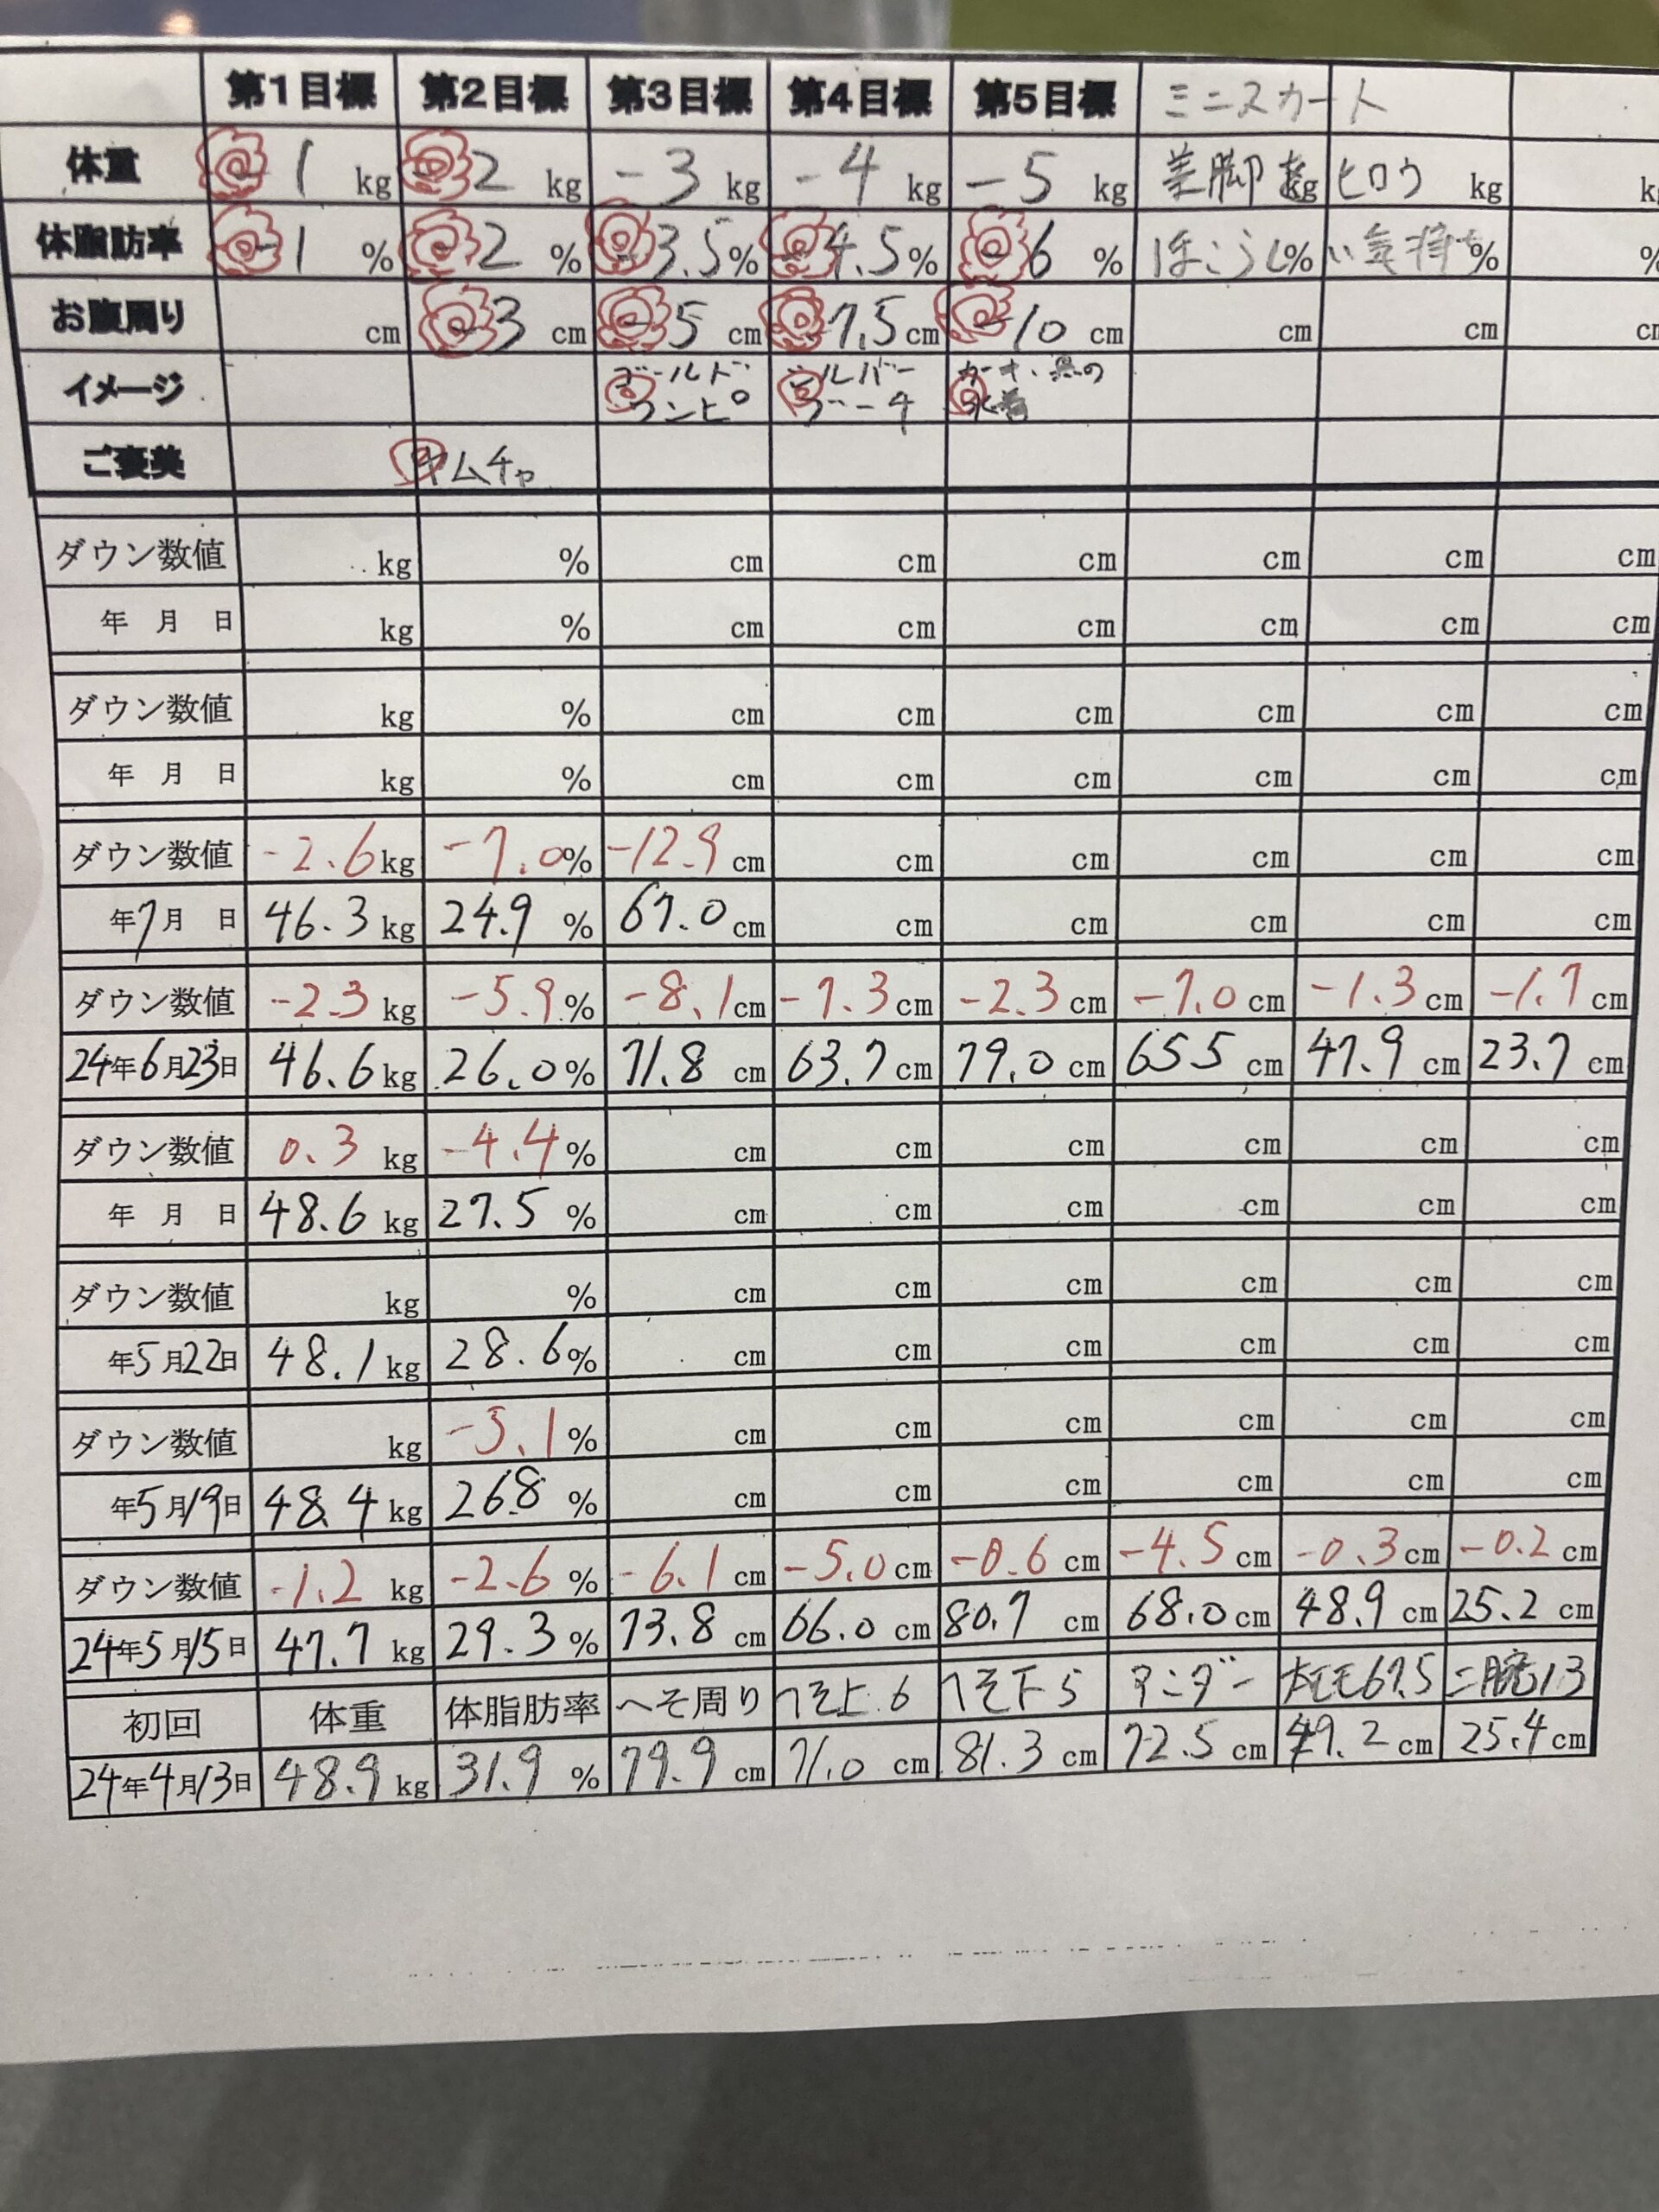 第1目標 第2目標 第3目標 第4目標 第5目標 ミニスカート
体重 -1 kg -2 kg -3 kg -4 kg -5 kg 美脚を kg ヒロウ kg kg
体脂肪率 -1 % -2 % -3.5% -4.5% -6 % ほこらし% い気持ち% %
お腹周り cm -3 cm -5 cm -7.5cm -10 cm cm cm cm
イメージ ゴールド ワンピ シルバー ブーチ 黒の 水着
ご褒美 ヤムチャ
ダウン数値 kg % cm cm cm cm cm cm
年 月 日 kg % cm cm cm cm cm cm
ダウン数値 kg % cm cm cm cm cm cm
年 月 日 kg % cm cm cm cm cm cm
ダウン数値 -2.6kg -7.0% -12.9 cm cm cm cm cm cm
年7月 日 46.3 kg 24.9 % 67.0cm cm cm cm cm cm
ダウン数値 -2.3 kg -5.9% -8.1cm -7.3cm -2.3 cm -7.0 cm -1.3 cm -1.7 cm
24年6月23日 46.6kg 26.0% 71.8 cm 63.7cm 79.0 cm 65.5 cm 47.9 cm 23.7 cm
ダウン数値 0.3 kg -4.4% cm cm cm cm cm cm
年 月 日 48.6 kg 27.5 % cm cm cm cm cm cm
ダウン数値 kg % cm cm cm cm cm cm
年5月22日 48.1kg 28.6% cm cm cm cm cm cm
ダウン数値 kg -5.1% cm cm cm cm cm cm
年5月19日 48.4kg 26.8 % cm cm cm cm cm cm
ダウン数値 -1.2 kg -2.6 % -6.1 cm -5.0cm -0.6 cm -4.5 cm -0.3cm -0.2 cm
24年5月15日 47.7 kg 29.3 % 73.8 cm 66.0 cm 80.7 cm 68.0cm 48.9 cm 25.2 cm
初回 体重 体脂肪率 へそ周り へそ上6 へそ下5 アンダー 太モモ67.5 二腕13
24年4月13日 48.9 kg 31.9 % 79.9 cm 71.0 cm 81.3 cm 72.5 cm 49.2 cm 25.4cm